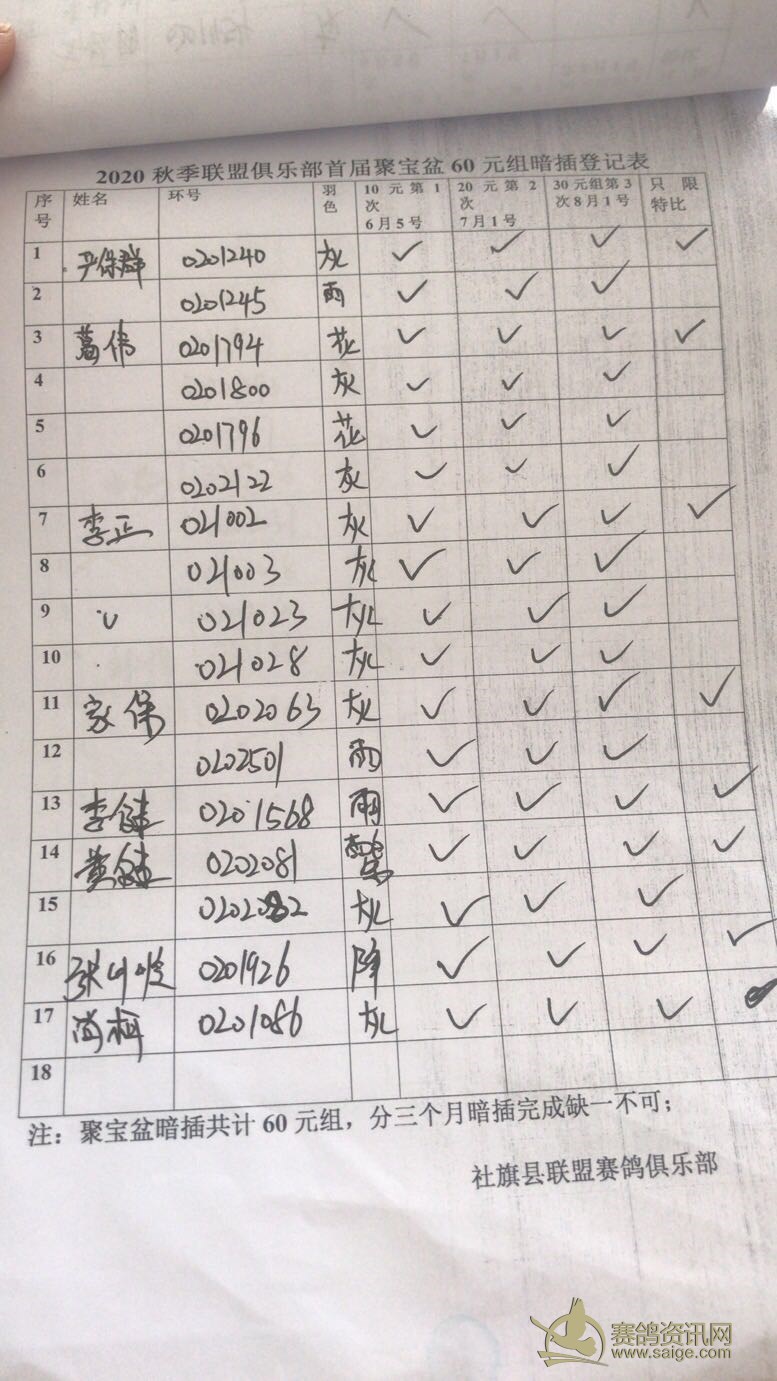 2020 秋季联盟俱乐部首届聚宝盆 60 元组暗插登记表
序号 姓名 环号 羽色 10 元第 1 次 6 月 5 号 20 元第 2 次 7 月 1 号 30 元组第 3 次 8 月 1 号 只限特比
1 尹保群 0201240 灰 ✓ ✓ ✓ ✓
2 0201245 雨 ✓ ✓ ✓
3 葛伟 0201794 花 ✓ ✓ ✓ ✓
4 0201800 灰 ✓ ✓ ✓
5 0201796 花 ✓ ✓ ✓
6 0202122 灰 ✓ ✓ ✓
7 李正 021002 灰 ✓ ✓ ✓ ✓
8 021003 灰 ✓ ✓ ✓
9 021023 灰 ✓ ✓ ✓
10 021028 灰 ✓ ✓ ✓
11 家保 0202063 灰 ✓ ✓ ✓ ✓
12 0202501 雨 ✓ ✓ ✓
13 李健 0201568 雨 ✓ ✓ ✓ ✓
14 黄健 0202081 ✓ ✓ ✓ ✓
15 0202082 灰 ✓ ✓ ✓
16 张 0201926 降 ✓ ✓ ✓ ✓
17 尚柯 0201086 灰 ✓ ✓ ✓
18
注：聚宝盆暗插共计 60 元组，分三个月暗插完成缺一不可；
社旗县联盟赛鸽俱乐部
赛鸽资讯网
www.saige.com